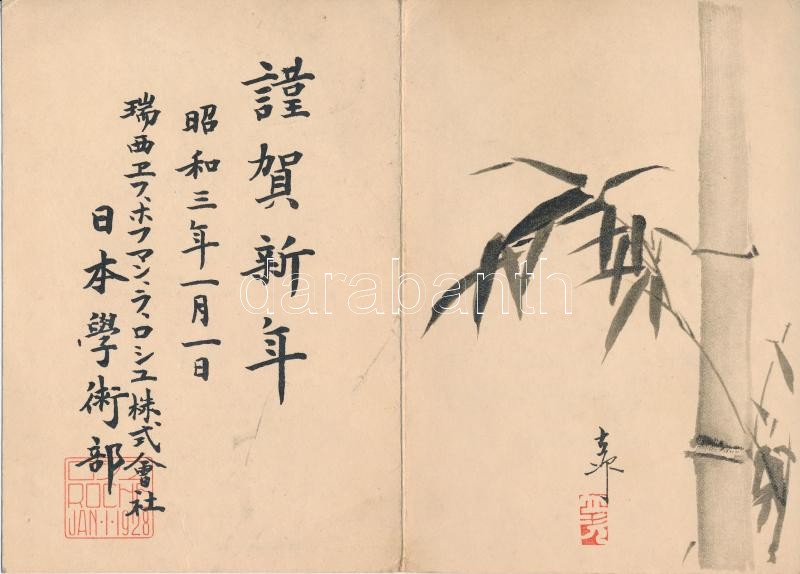 謹賀新年
昭和三年一月一日
瑞西エフ、ホフマン、ラ、ロシュ株式會社
日本學術部
ROCHE
JAN·1·1928
darabanth